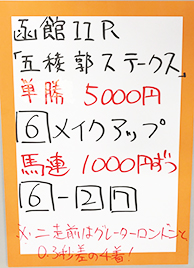 函館11R
「五稜郭ステークス」
単勝 5000円
6 メイクアップ
馬連 1000円ずつ
6-2 7
※二走前はグレーターロンドンと
0.3秒差の4着!